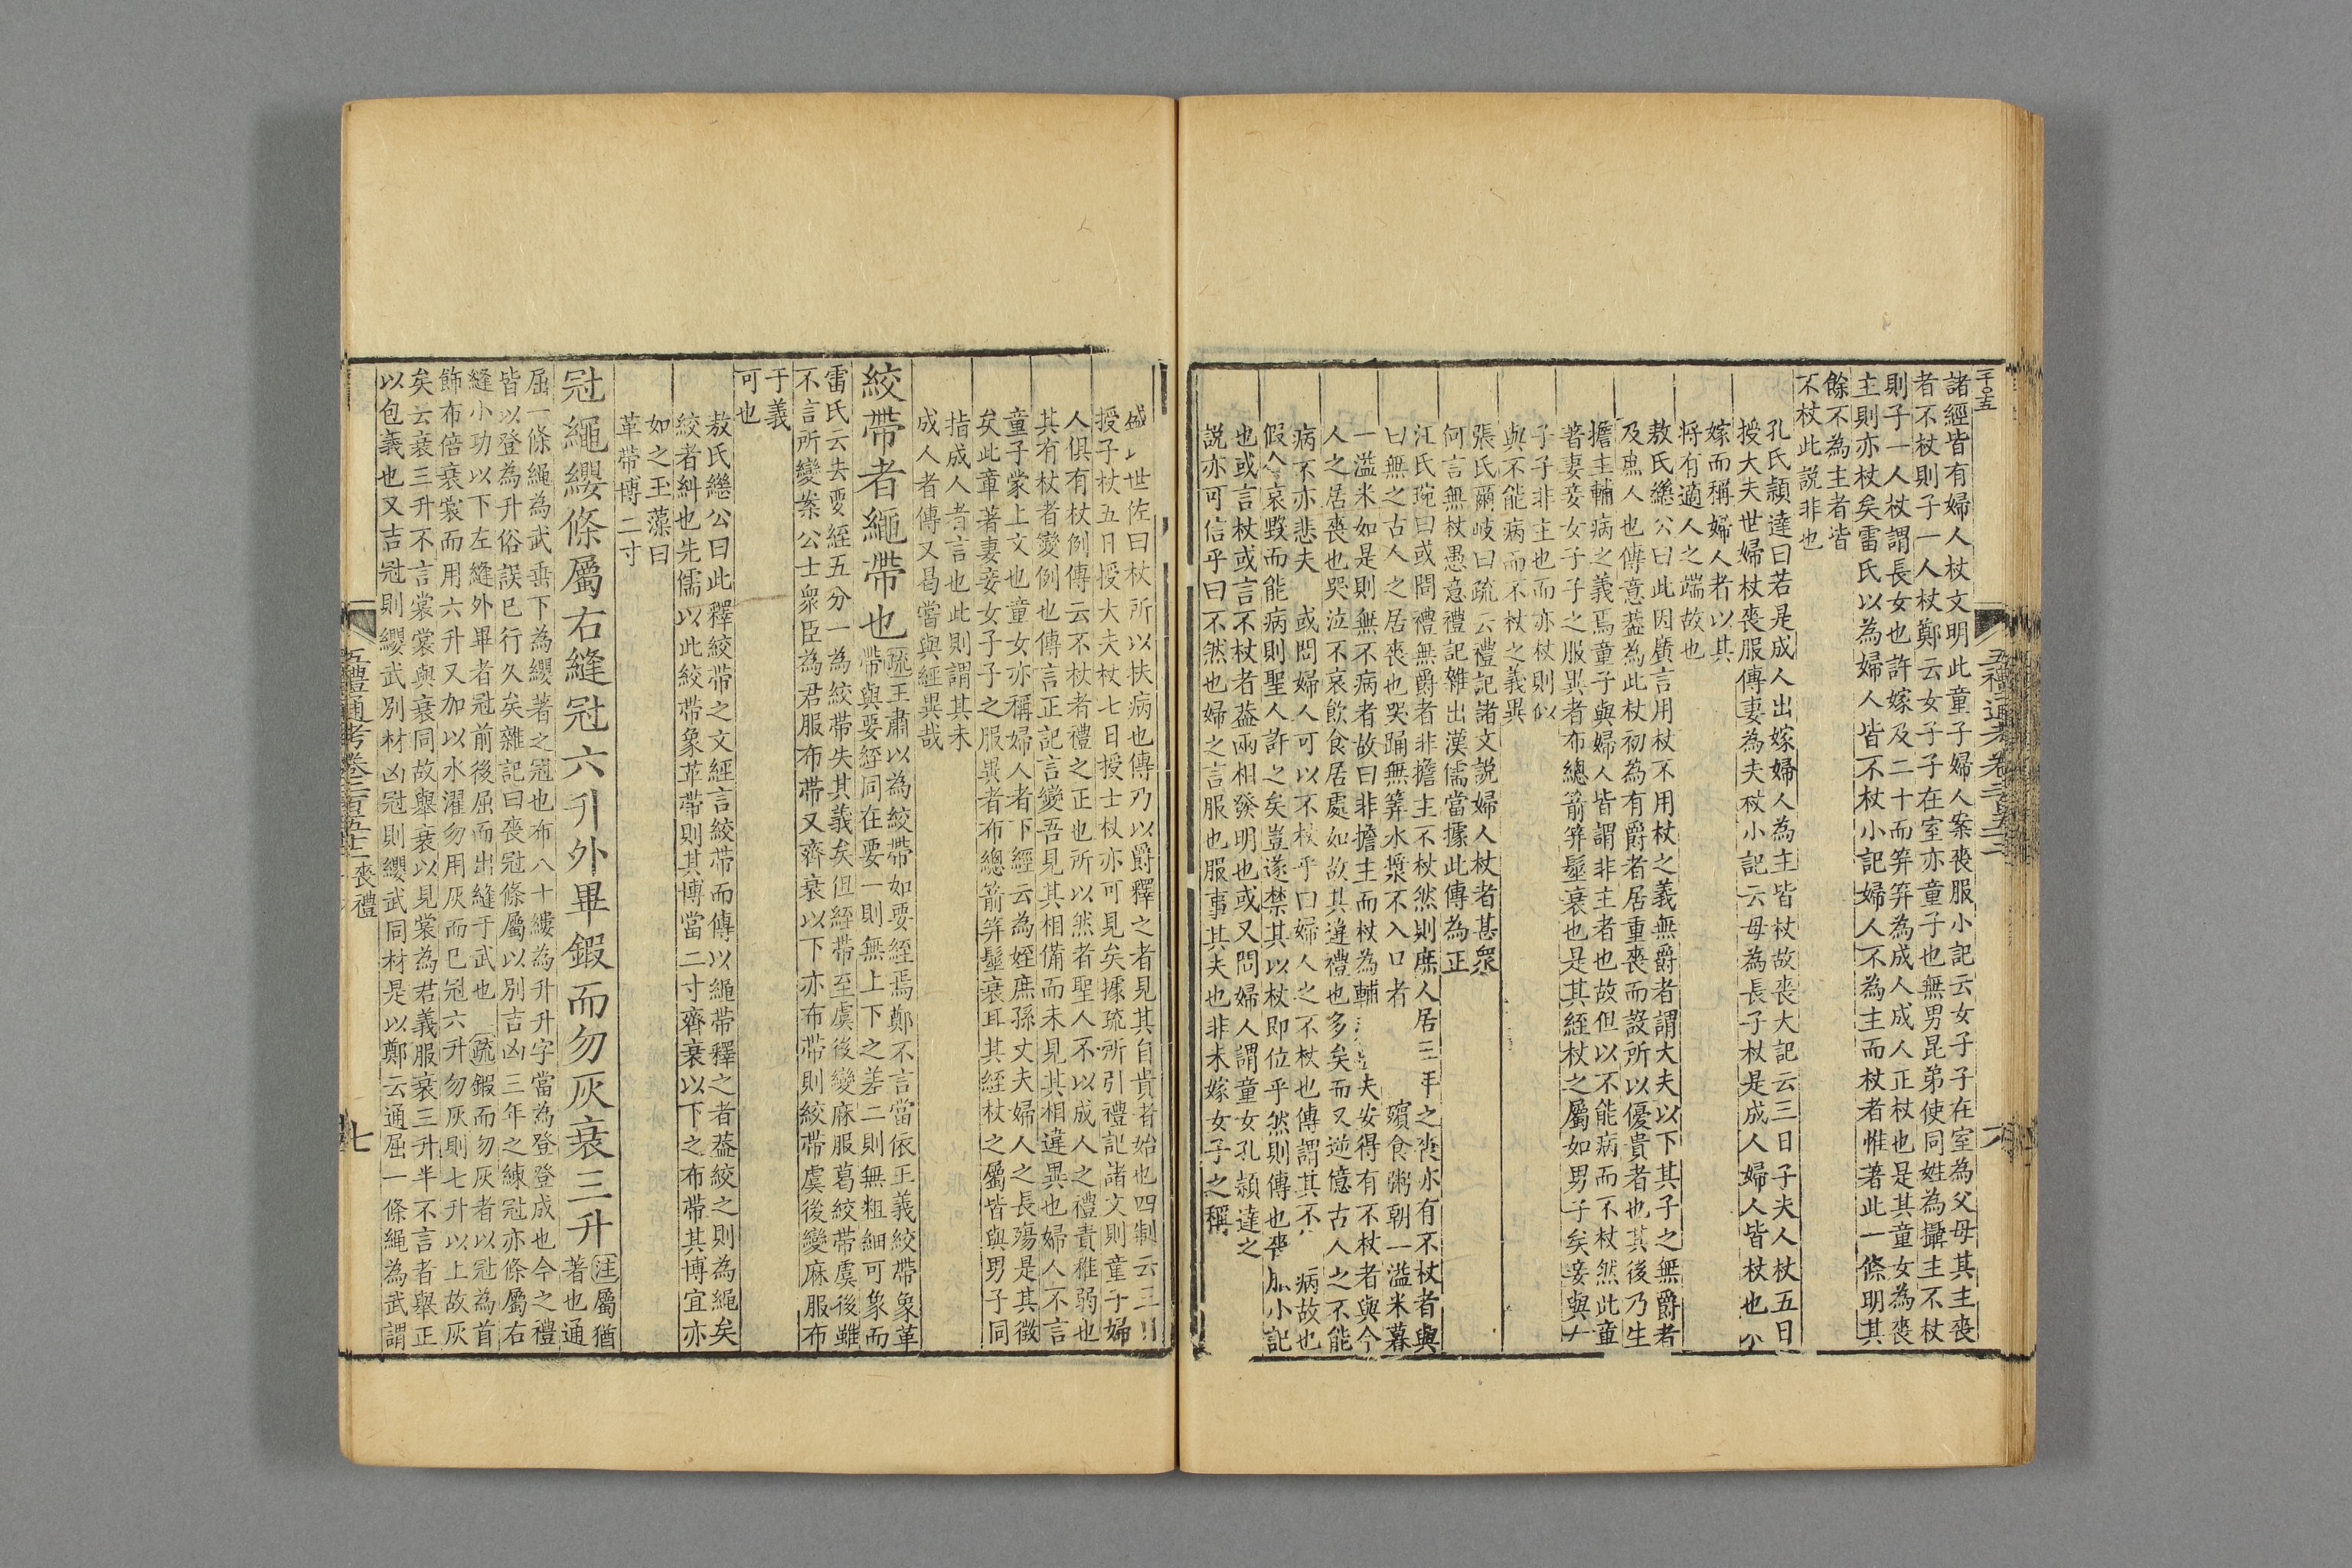 諸經皆有婦人杖文明此童子婦人案喪服小記云女子子在室為父母其主喪
者不杖則子一人杖鄭云女子子在室亦童子也無男昆弟使同姓為攝主不杖
則子一人杖謂長女也許嫁及二十而筓筓為成人成人正杖也是其童女為喪
主則亦杖矣雷氏以為婦人皆不杖小記婦人不為主而杖者惟著此一條明其
餘不為主者皆
不杖此說非也
孔氏頴達曰若是成人出嫁婦人為主皆杖故喪大記云三日子夫人杖五日
授大夫世婦杖喪服傳妻為夫杖小記云母為長子杖是成人婦人皆杖也
嫁而稱婦人者以其
將有適人之端故也
敖氏繼公曰此因廣言用杖不用杖之義無爵者謂大夫以下其子之無爵者
及庶人也傳意葢為此杖初為有爵者居重喪而設所以優貴者也其後乃生
擔主輔病之義焉童子與婦人皆謂非主者也故但以不能病而不杖然此童
著妻妾女子子之服異者布總箭筓髽衰也是其絰杖之屬如男子矣妾與
子子非主也而亦杖則似
與不能病而不杖之義異
張氏爾岐曰疏云禮記諸文說婦人杖者甚衆
何言無杖愚意禮記雜出漢儒當據此傳為正
江氏琬曰或問禮無爵者非擔主不杖然則庶人居三年之喪亦有不杖者與
曰無之古人之居喪也哭踊無筭水漿不入口者 殯食粥朝一溢米暮
一溢米如是則無不病者故曰非擔主而杖為輔 夫安得有不杖者與今
人之居喪也哭泣不哀飲食居處如故其違禮也多矣而又逆億古人之不能
病不亦悲夫 或問婦人可以不杖乎曰婦人之不杖也傳謂其不 病故也
假令哀毀而能病則聖人許之矣豈遂禁其以杖即位乎然則傳也喪服小記
也或言杖或言不杖者葢兩相發明也或又問婦人謂童女孔頴達之
說亦可信乎曰不然也婦之言服也服事其夫也非未嫁女子之稱
五禮通考卷二百五十二
盛 世佐曰杖所以扶病也傳乃以爵釋之者見其自貴者始也四制云三日
授子杖五日授大夫杖七日授士杖亦可見矣據疏所引禮記諸文則童子婦
人俱有杖例傳云不杖者禮之正也所以然者聖人不以成人之禮責稚弱也
其有杖者變例也傳言正記言變吾見其相備而未見其相違異也婦人不言
童子蒙上文也童女亦稱婦人者下經云為姪庶孫丈夫婦人之長殤是其徵
矣此章著妻妾女子子之服異者布總箭筓髽衰耳其絰杖之屬皆與男子同
指成人者言也此則謂其未
成人者傳又曷嘗與經異哉
絞帶者繩帶也疏王肅以為絞帶如要絰焉鄭不言當依王義絞帶象革
帶與要絰同在要一則無上下之差二則無粗細可象而
雷氏云去要絰五分一為絞帶失其義矣但絰帶至虞後變麻服葛絞帶虞後雖
不言所變案公士衆臣為君服布帶又齊衰以下亦布帶則絞帶虞後變麻服布
于義
可也
敖氏繼公曰此釋絞帶之文經言絞帶而傳以繩帶釋之者葢絞之則為繩矣
絞者糾也先儒以此絞帶象革帶則其博當二寸齊衰以下之布帶其博宜亦
如之玉藻曰
革帶博二寸
冠繩纓條屬右縫冠六升外畢鍜而勿灰衰三升注屬猶
著也通
屈一條繩為武垂下為纓著之冠也布八十縷為升升字當為登登成也今之禮
皆以登為升俗誤已行久矣雜記曰喪冠條屬以別吉凶三年之練冠亦條屬右
縫小功以下左縫外畢者冠前後屈而出縫于武也 疏鍜而勿灰者以冠為首
飾布倍衰裳而用六升又加以水濯勿用灰而巳冠六升勿灰則七升以上故灰
矣云衰三升不言裳裳與衰同故舉衰以見裳為君義服衰三升半不言者舉正
以包義也又吉冠則纓武別材凶冠則纓武同材是以鄭云通屈一條繩為武謂
五禮通考卷二百五十二 喪禮
七